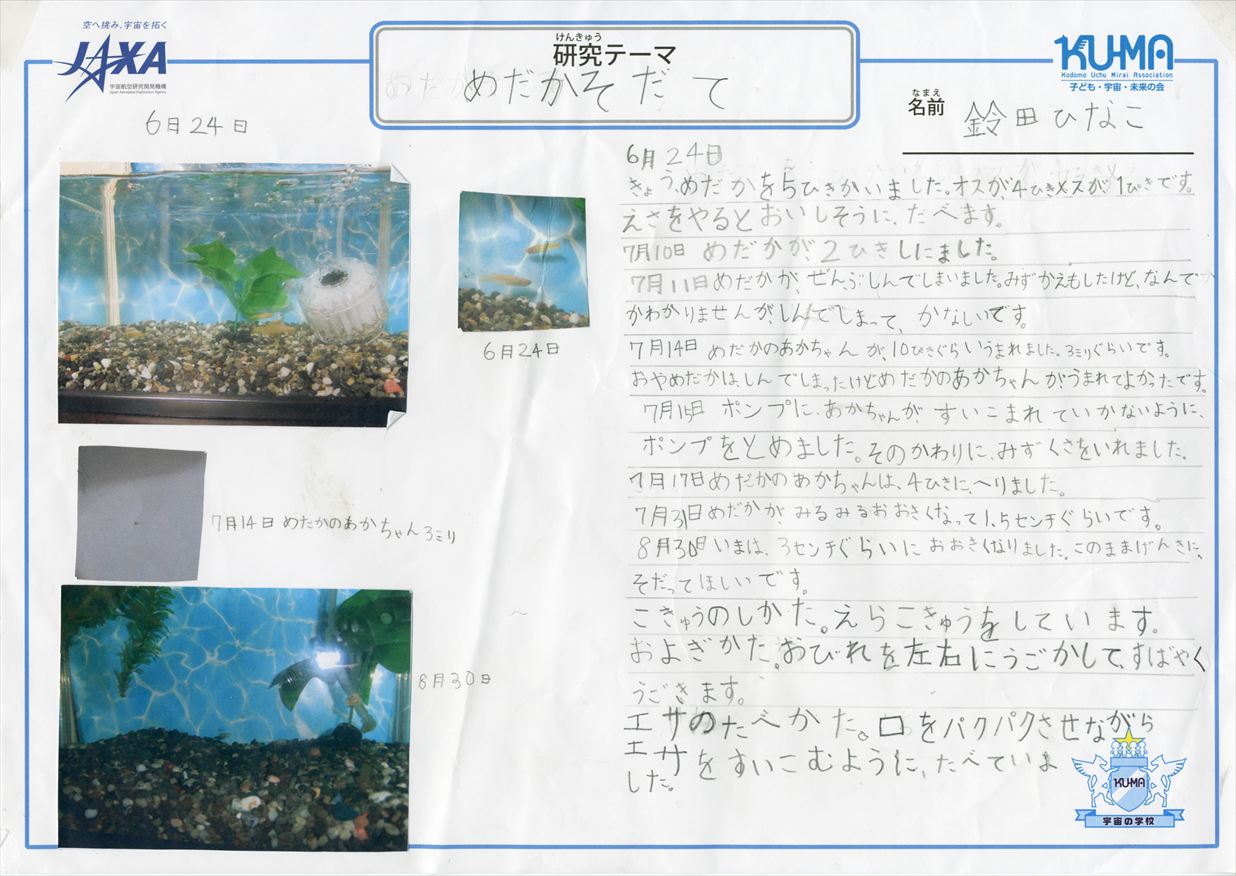 空へ挑み、宇宙を拓く
JAXA
宇宙航空研究開発機構
Japan Aerospace Exploration Agency
けんきゅう
研究テーマ
めだかそだて
KUMA
Kodomo Uchu Mirai Association
子ども・宇宙・未来の会
なまえ
名前 鈴田ひなこ
6月24日
6月24日
7月14日 めたかのあかちゃん3ミリ
8月30日
6月24日
きょう、めだかを5ひきかいました。オスが4ひきメスが1ぴきです。
えさをやるとおいしそうに、たべます。
7月10日 めだかが、2ひきしにました。
7月11日めだかが、ぜんぶしんでしまいました。みずかえもしたけど、なんで
かわかりませんが、しんでしまって、かなしいです。
7月14日 めだかのあかちゃんが、10ぴきぐらいうまれました。3ミリぐらいです。
おやめだかは、しんでしまったけどめだかのあかちゃんがうまれてよかったです。
7月15日 ポンプに、あかちゃんが、すいこまれていかないように、
ポンプをとめました。そのかわりに、みずくさをいれました。
7月17日めだかのあかちゃんは、4ひきに、へりました。
7月31日めだかが、みるみるおおきくなって1.5センチぐらいです。
8月30日いまは、3センチぐらいにおおきくなりました。このままげんきに、
そだってほしいです。
こきゅうのしかた。えらこきゅうをしています。
およぎかた。おびれを左右にうごかして、すばやく
うごきます。
エサのたべかた。口をパクパクさせながら
エサをすいこむように、たべていま
した。
KUMA
宇宙の学校